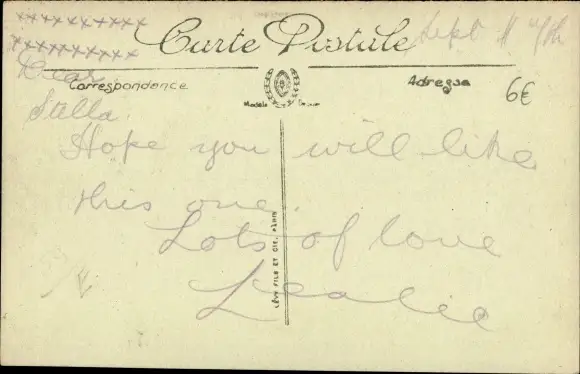 xxxxxxxxxx
xxxxxxxxxx
Carte Postale
Sept 11
Dear
Correspondance
Adresse
6€
Modèle Déposé
Stella
Hope you will like
this one.
Lots of love
Leslie
LÉVY FILS ET CIE. PARIS